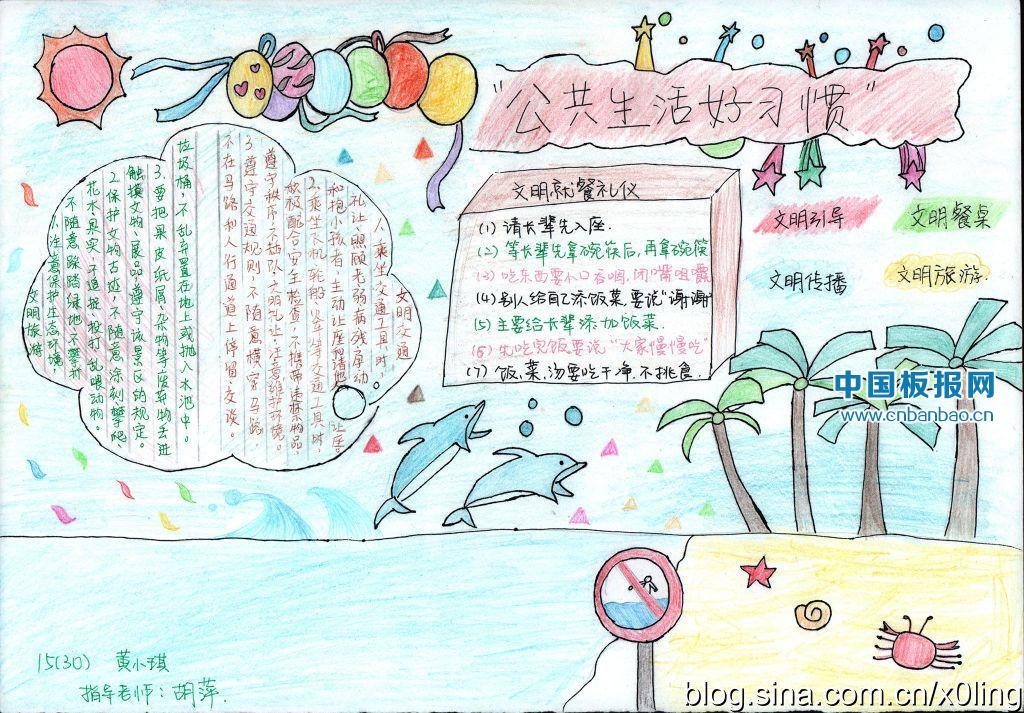 "公共生活好习惯"
文明就餐礼仪
(1) 请长辈先入座.
(2) 等长辈先拿碗筷后,再拿碗筷
(3) 吃东西要小口吞咽,闭嘴咀嚼
(4) 别人给自己添饭菜,要说"谢谢"
(5) 主要给长辈添加饭菜.
(6) 先吃完饭要说"大家慢慢吃"
(7) 饭、菜、汤要吃干净.不挑食.
文明引导
文明餐桌
文明传播
文明旅游.
文明交通
1、乘坐交通工具时,
礼让、照顾老弱病残孕幼
和抱小孩者,主动让座
2、乘坐飞机、轮船、火车等交通工具时,
积极配合安全检查,不携带违禁物品,
遵守秩序,不插队,文明礼让,注意维护环境。
3、遵守交通规则,不随意横穿马路,
不在马路和人行通道上停留、交谈。
文明旅游
1、注意保护生态环境,
不随意踩踏绿地,不攀折
花木、果实,不追捉、投打、乱喂动物。
2、保护文物古迹,不随意涂刻、攀爬、
触摸文物、展品,遵守该景区的规定。
3、要把果皮纸屑、杂物等废弃物丢进
垃圾桶,不乱弃置在地上或抛入水池中。
中国板报网
www.cnbanbao.cn
15(30) 黄小琪
指导老师:胡萍.
blog.sina.com.cn/x0ling